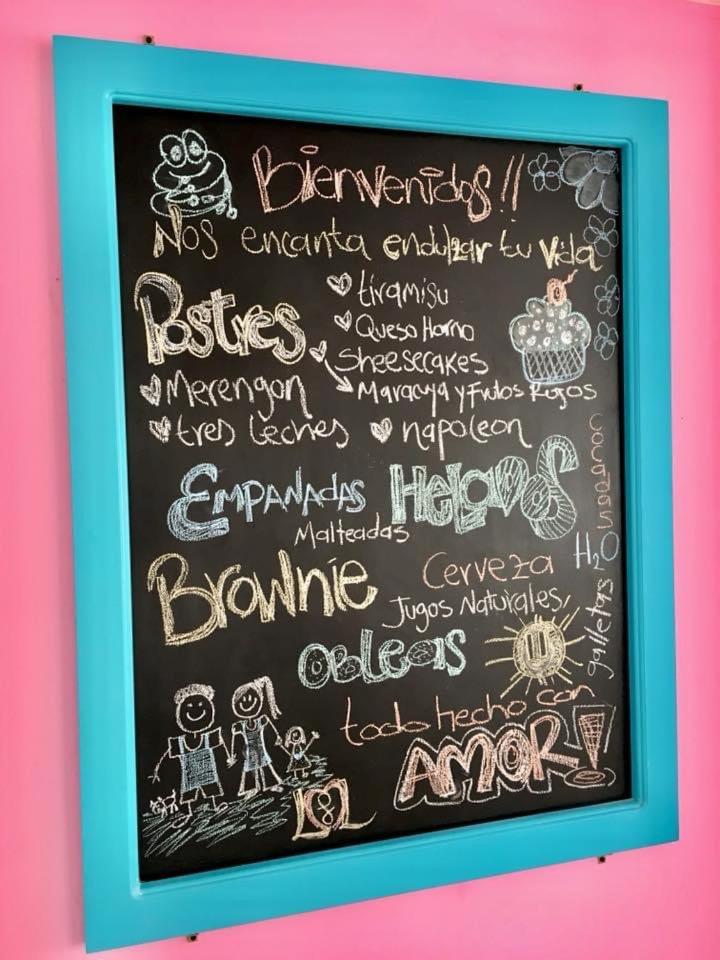 Bienvenidos!!
Nos encanta endulzar tu vida
Postres
tiramisu
Queso Horno
Sheesecakes
Maracuya y Frutos Rojos
Merengon
tres leches
napoleon
EMPANADAS
HELADOS
Malteadas
Brownie
Cerveza
Jugos Naturales
H2O
galletas
OBLEAS
todo hecho con
AMOR!